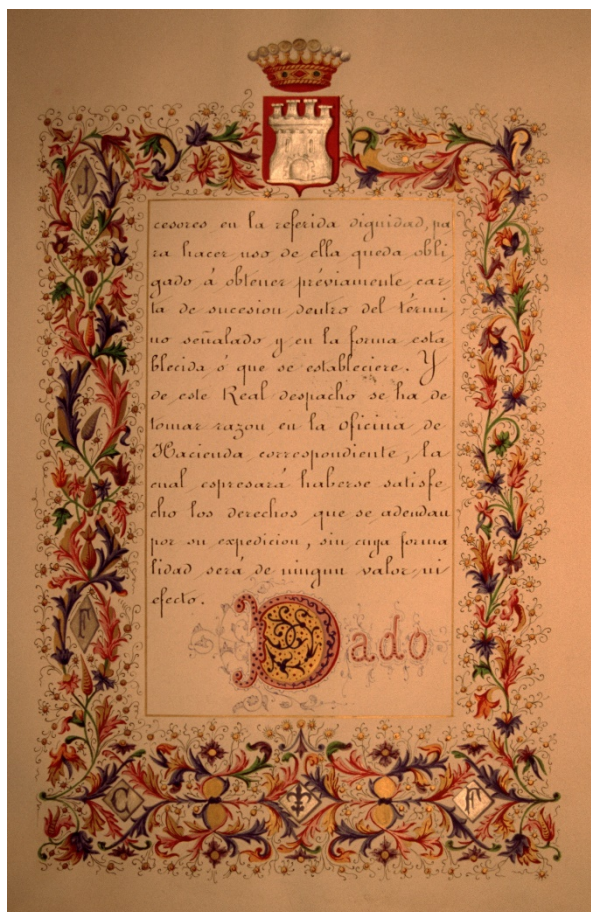 cesores en la referida dignidad, pa
ra hacer uso de ella queda obli
gado á obtener préviamente car
ta de sucesion dentro del térmi
no señalado y en la forma esta
blecida ó que se estableciere. Y
de este Real despacho se ha de
tomar razon en la Oficina de
Hacienda correspondiente, la
cual espresará haberse satisfe
cho los derechos que se adeudan
por su expedicion, sin cuya forma
lidad será de ningun valor ni
efecto.
Dado